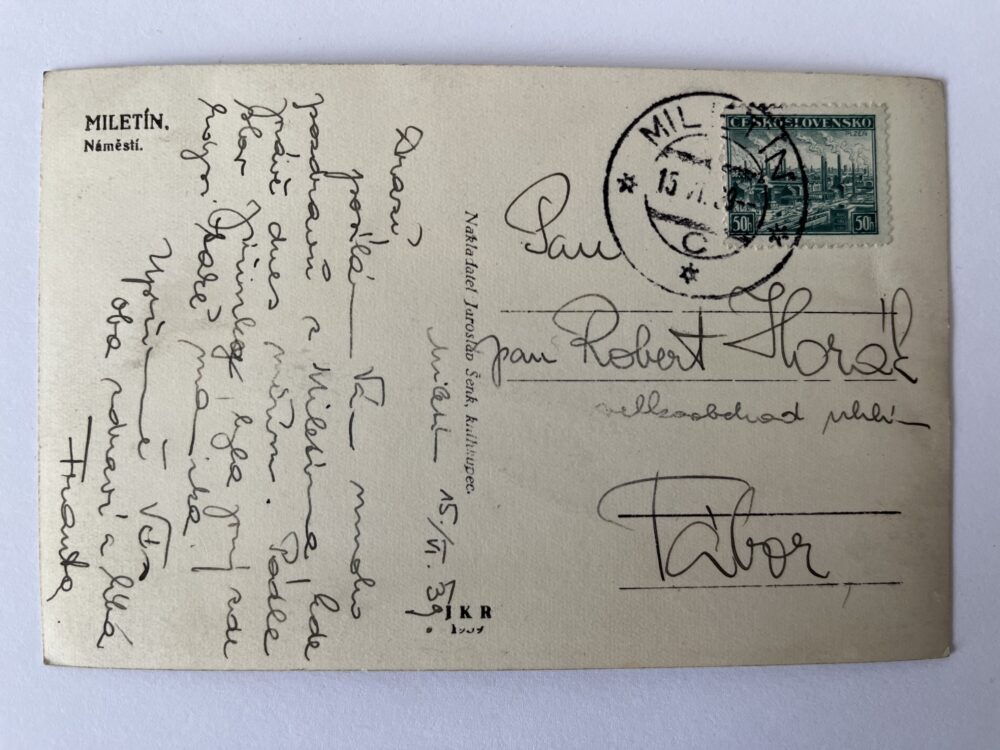 MILETÍN.
Náměstí.
Drazí
posílám Vám mnoho
pozdravů z Miletína kde
právě dnes
byla prý zde
Upřímně Vás
oba zdraví a líbá
Franta
Miletín 15./VI. 39.
Nakladatel Jaroslav Šenk, knihkupec.
JKR
1939
MILETÍN
15 VI 39
C
ČESKOSLOVENSKO
PLZEŇ
50h 50h
Pan
pan Robert Horák
velkoobchod uhlím
Tábor,